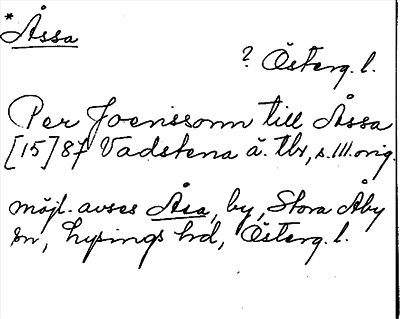 * Åssa
? Österg. l.
Per Joenssonn till Åssa
[15]87 Vadstena ä. tbr, s. 111. orig.
möjl. avses Åsa, by, Stora Åby
sn, Lysings hd, Österg. l.